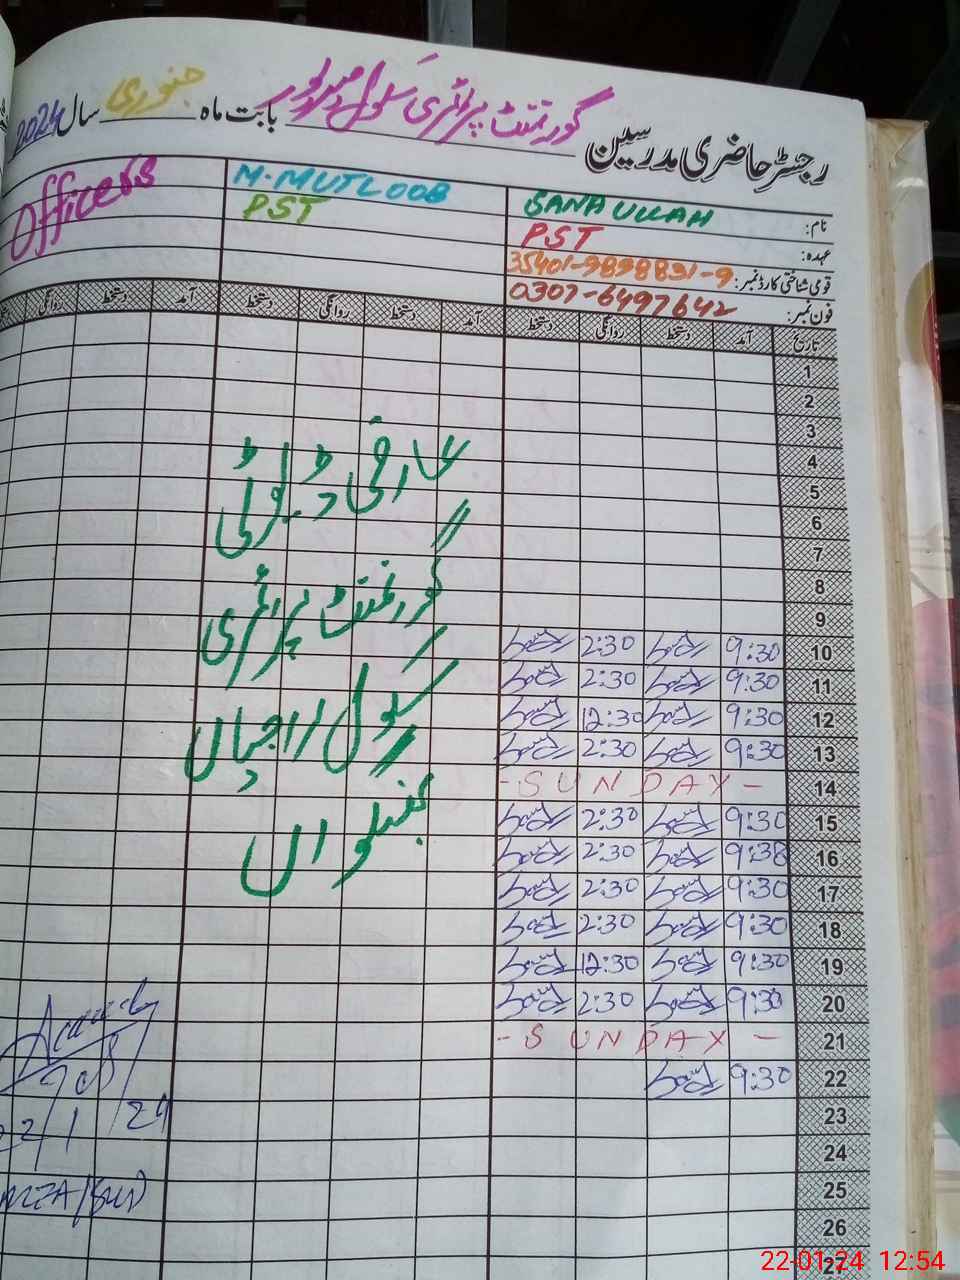 رجسٹر حاضری مدرسین گورنمنٹ پرائمری سکول بابت ماہ جنوری سال 2024
نام: SANA ULLAH M. MUTLOOB Officers
عہدہ: PST PST
قومی شناختی کارڈ نمبر: 35401-9898831-9
فون نمبر: 0307-6497642
تاریخ آمد دستخط روانگی دستخط آمد دستخط روانگی دستخط آمد دستخط روانگی
1
2
3
4
5
6
7
8
9
10 9:30 2:30
11 9:30 2:30
12 9:30 12:30
13 9:30 2:30
14 - SUNDAY -
15 9:30 2:30
16 9:30 2:30
17 9:30 2:30
18 9:30 2:30
19 9:30 12:30
20 9:30 2:30
21 - SUNDAY -
22 9:30
23
24
25
26
27
عارضی ڈیوٹی
گورنمنٹ پرائمری
سکول
22/1/24
22-01-24 12:54